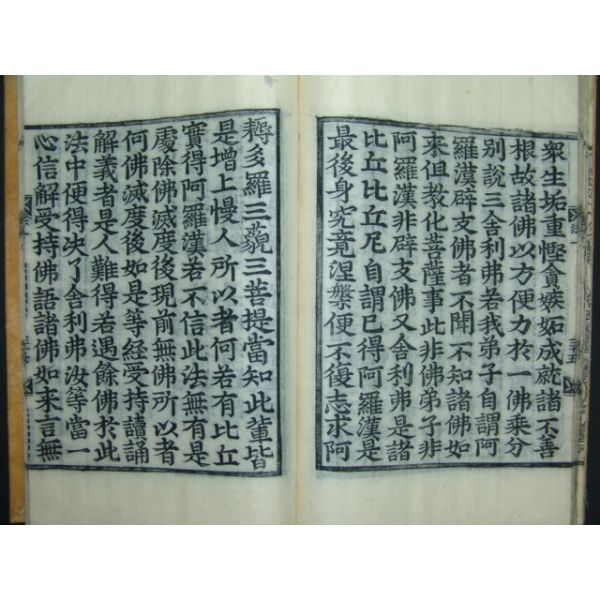 衆生垢重慳貪嫉妬成就諸不善
根故諸佛以方便力於一佛乘分
別說三舍利弗若我弟子自謂阿
羅漢辟支佛者不聞不知諸佛如
來但教化菩薩事此非佛弟子非
阿羅漢非辟支佛又舍利弗是諸
比丘比丘尼自謂已得阿羅漢是
最後身究竟涅槃便不復志求阿
耨多羅三藐三菩提當知此輩皆
是增上慢人所以者何若有比丘
實得阿羅漢若不信此法無有是
處除佛滅度後現前無佛所以者
何佛滅度後如是等經受持讀誦
解義者是人難得若遇餘佛於此
法中便得决了舍利弗汝等當一
心信解受持佛語諸佛如来言無